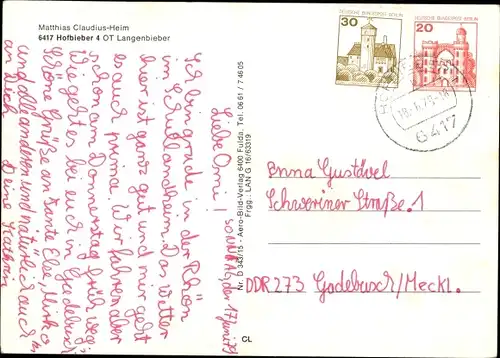 Matthias Claudius-Heim
6417 Hofbieber 4 OT Langenbieber
SONNTAG, der 17. Juni 79
Liebe Omi!
Ich bin grade in der Rhön
im Schullandheim. Das Wetter
hier ist ganz gut und mir geht
es auch prima. Wir fahren aber
schon am Donnerstag früh weg.
Wie geht es bei euch in Gadebusch
Schöne Grüße an Tante Else, Mirko
und alle andren und natürlich auch
an Dich Deine Kathrin
Nr. D 343/15 - Aero-Bild-Verlag 6400 Fulda. Tel. 06 61 / 7 46 05
Frgg.: LAN G 16/63319
CL
30
DEUTSCHE BUNDESPOST BERLIN
20
6417
Anna Gustävel
Schweriner Straße 1
DDR 273 Gadebusch/Meckl.